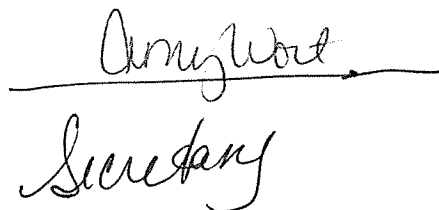 Amy Wort
Secretary